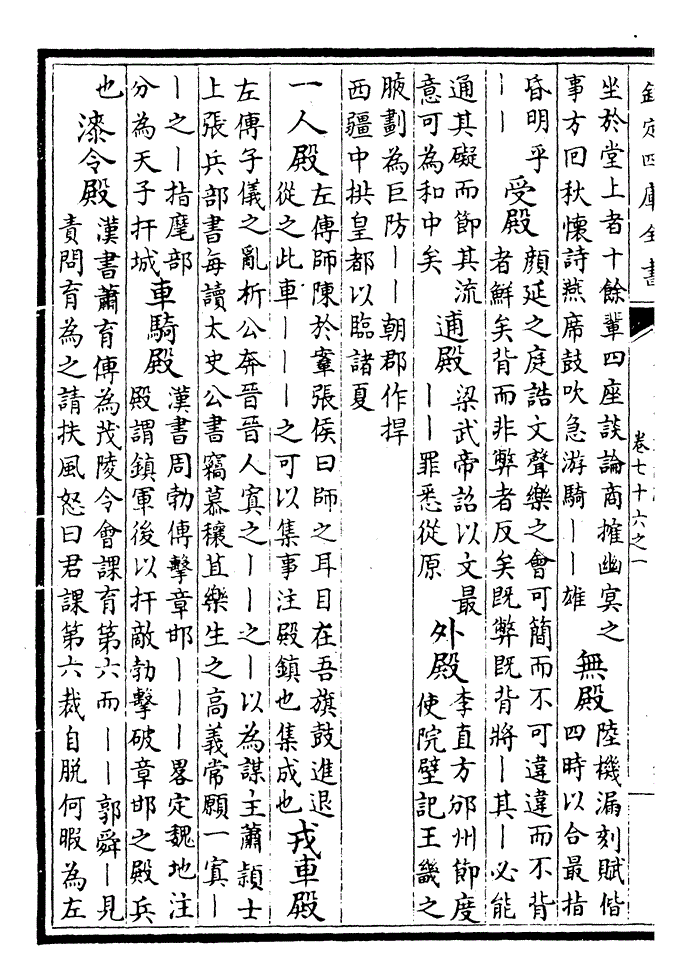 欽定四庫全書
卷七十六之一
坐於堂上者十餘輩四座談論商搉幽冥之
事方回秋懷詩燕席鼓吹急游騎——雄
無殿
陸機漏刻賦偕
四時以合最指
昏明乎
——
受殿
顔延之庭誥文聲樂之會可簡而不可違違而不背
者鮮矣背而非弊者反矣既弊既背將—其—必能
通其礙而節其流
意可為和中矣
逋殿
梁武帝詔以文最
——罪悉從原
外殿
李直方邠州節度
使院壁記王畿之
腋劃為巨防——朝郡作捍
西疆中拱皇都以臨諸夏
一人殿
左傳師陳於鞌張侯曰師之耳目在吾旗鼓進退
從之此車———之可以集事注殿鎮也集成也
戎車殿
左傳子儀之亂析公奔晉晉人寘之——之—以為謀主蕭頴士
上張兵部書每讀太史公書竊慕穰苴樂生之高義常願一寘—
—之—指麾部
分為天子扞城
車騎殿
漢書周勃傳擊章邯———畧定魏地注
殿謂鎮軍後以扞敵勃擊破章邯之殿兵
也
漆令殿
漢書蕭育傳為茂陵令會課育第六而——郭舜—見
責問育為之請扶風怒曰君課第六裁自脫何暇為左